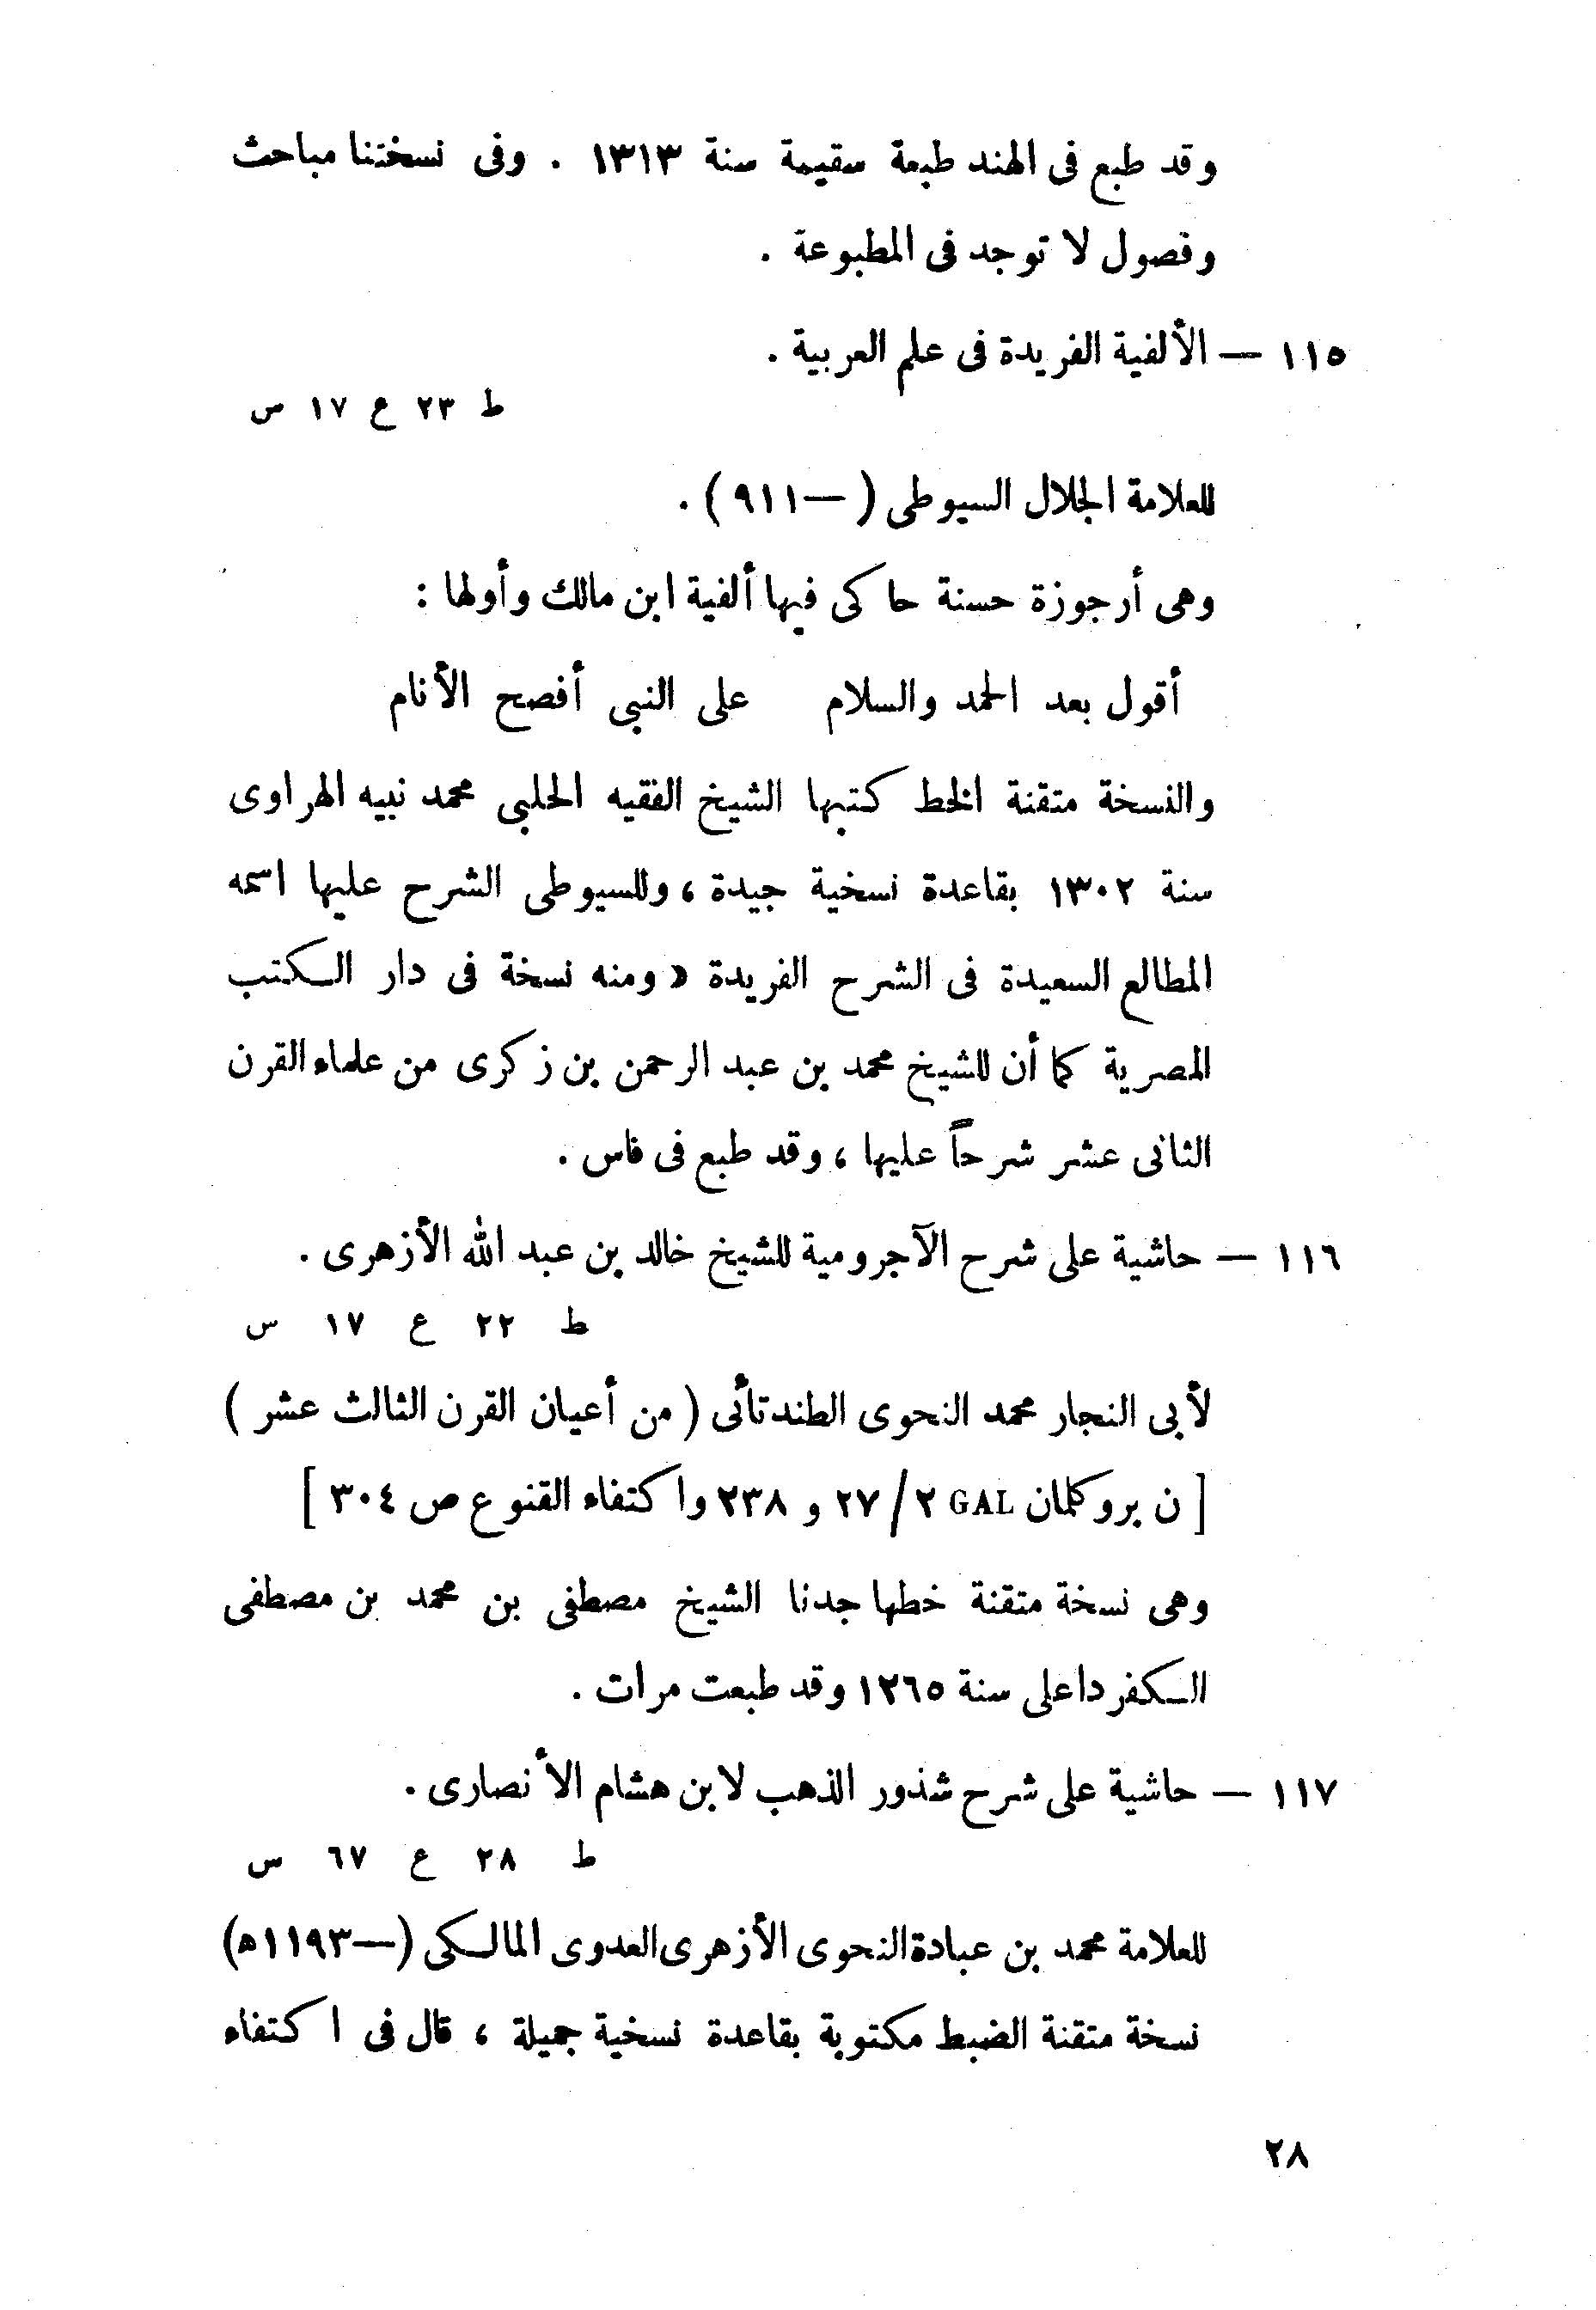 وقد طبع فى الهند طبعة سقيمة سنة ١٣١٣ . وفى نسختنا مباحث
وفصول لا توجد فى المطبوعة .
١١٥ — الألفية الفريدة فى علم العربية .
ط ٢٣ ع ١٧ س
للعلامة الجلال السيوطى ( —٩١١ ) .
وهى أرجوزة حسنة حاكى فيها ألفية ابن مالك وأولها :
أقول بعد الحمد والسلام على النبى أفصح الأنام
والنسخة متقنة الخط كتبها الشيخ الفقيه الحلبى محمد نبيه الهراوى
سنة ١٣٠٢ بقاعدة نسخية جيدة ، وللسيوطى الشرح عليها اسمه
المطالع السعيدة فى الشرح الفريدة » ومنه نسخة فى دار الكتب
المصرية كما أن للشيخ محمد بن عبد الرحمن بن زكرى من علماء القرن
الثانى عشر شرحاً عليها ، وقد طبع فى فاس .
١١٦ — حاشية على شرح الآجرومية للشيخ خالد بن عبد الله الأزهرى .
ط ٢٢ ع ١٧ س
لأبى النجار محمد النحوى الطندتائى ( من أعيان القرن الثالث عشر )
[ ن بروكلمان GAL ٢ / ٢٧ و ٢٣٨ واكتفاء القنوع ص ٣٠٤ ]
وهى نسخة متقنة خطها جدنا الشيخ مصطفى بن محمد بن مصطفى
الكفرداعلى سنة ١٢٦٥ وقد طبعت مرات .
١١٧ — حاشية على شرح شذور الذهب لابن هشام الأنصارى .
ط ٢٨ ع ٦٧ س
للعلامة محمد بن عبادة النحوى الأزهرى العدوى المالكى (—١١٩٣ه)
نسخة متقنة الضبط مكتوبة بقاعدة نسخية جميلة ، قال فى اكتفاء
٢٨